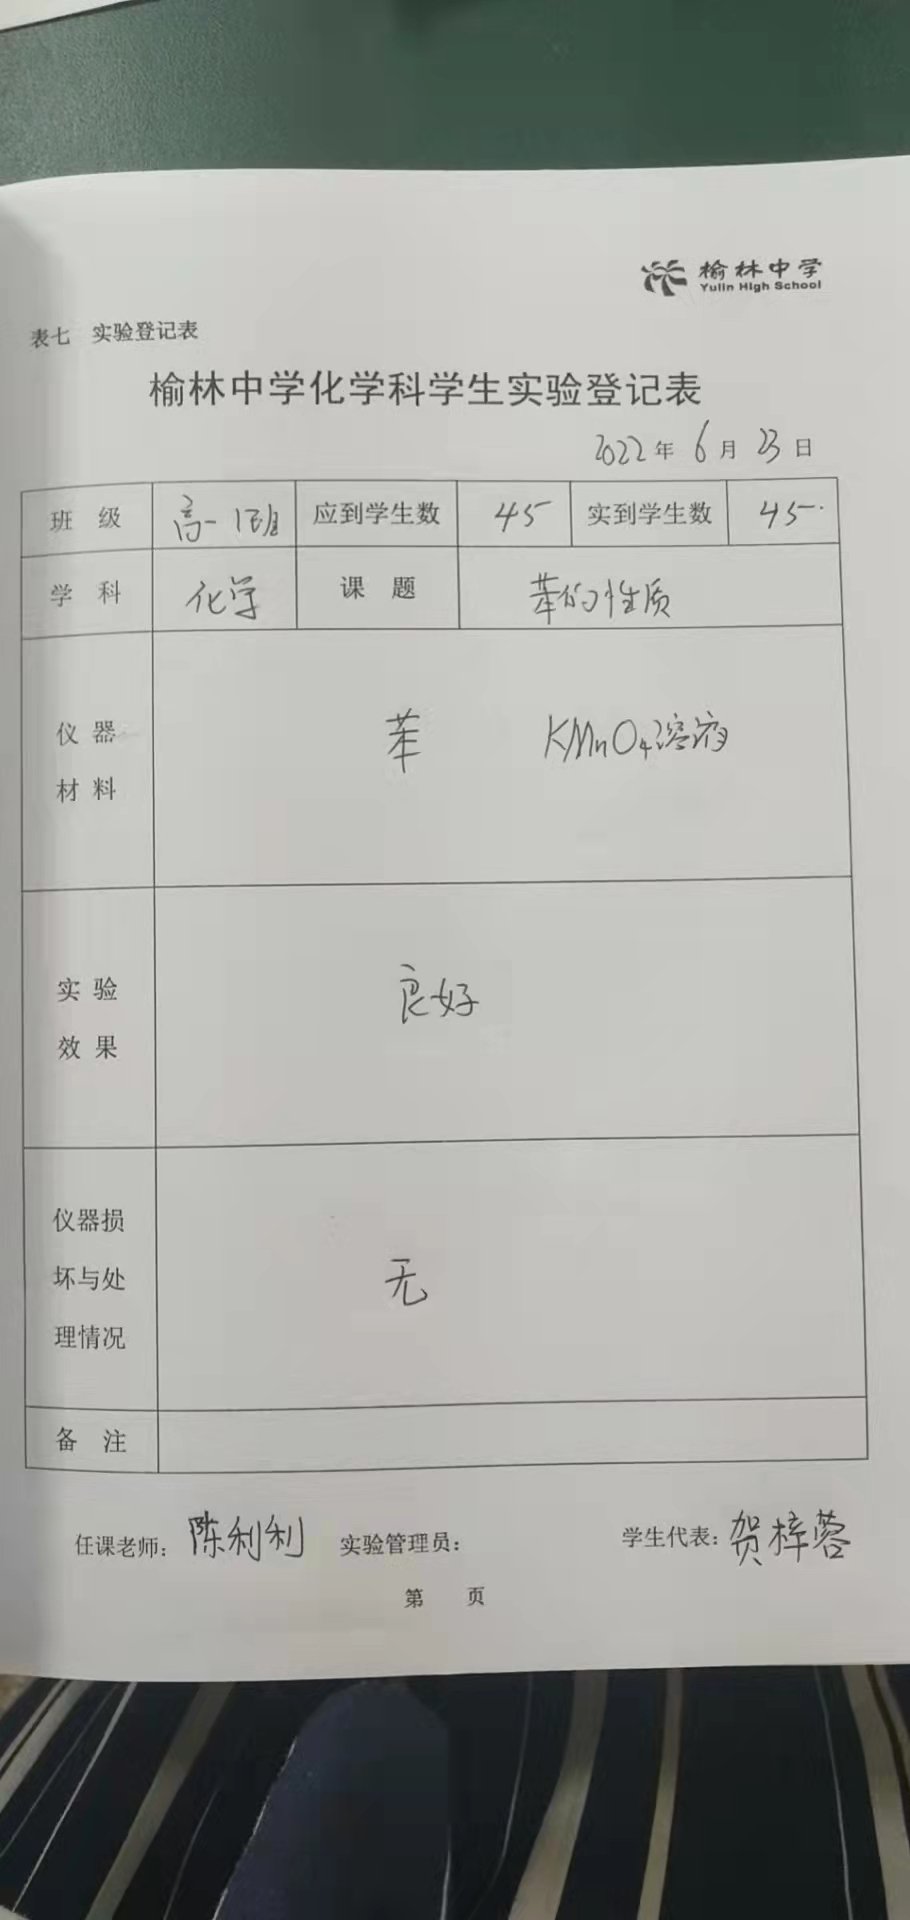 榆林中学
Yulin High School
表七 实验登记表
榆林中学化学科学生实验登记表
2022年6月23日
班 级 高一1班 应到学生数 45 实到学生数 45
学 科 化学 课 题 苯的性质
仪 器
材 料
苯 KMnO4溶液
实 验
效 果
良好
仪器损
坏与处
理情况
无
备 注
任课老师：陈利利 实验管理员： 学生代表：贺梓蓉
第 页